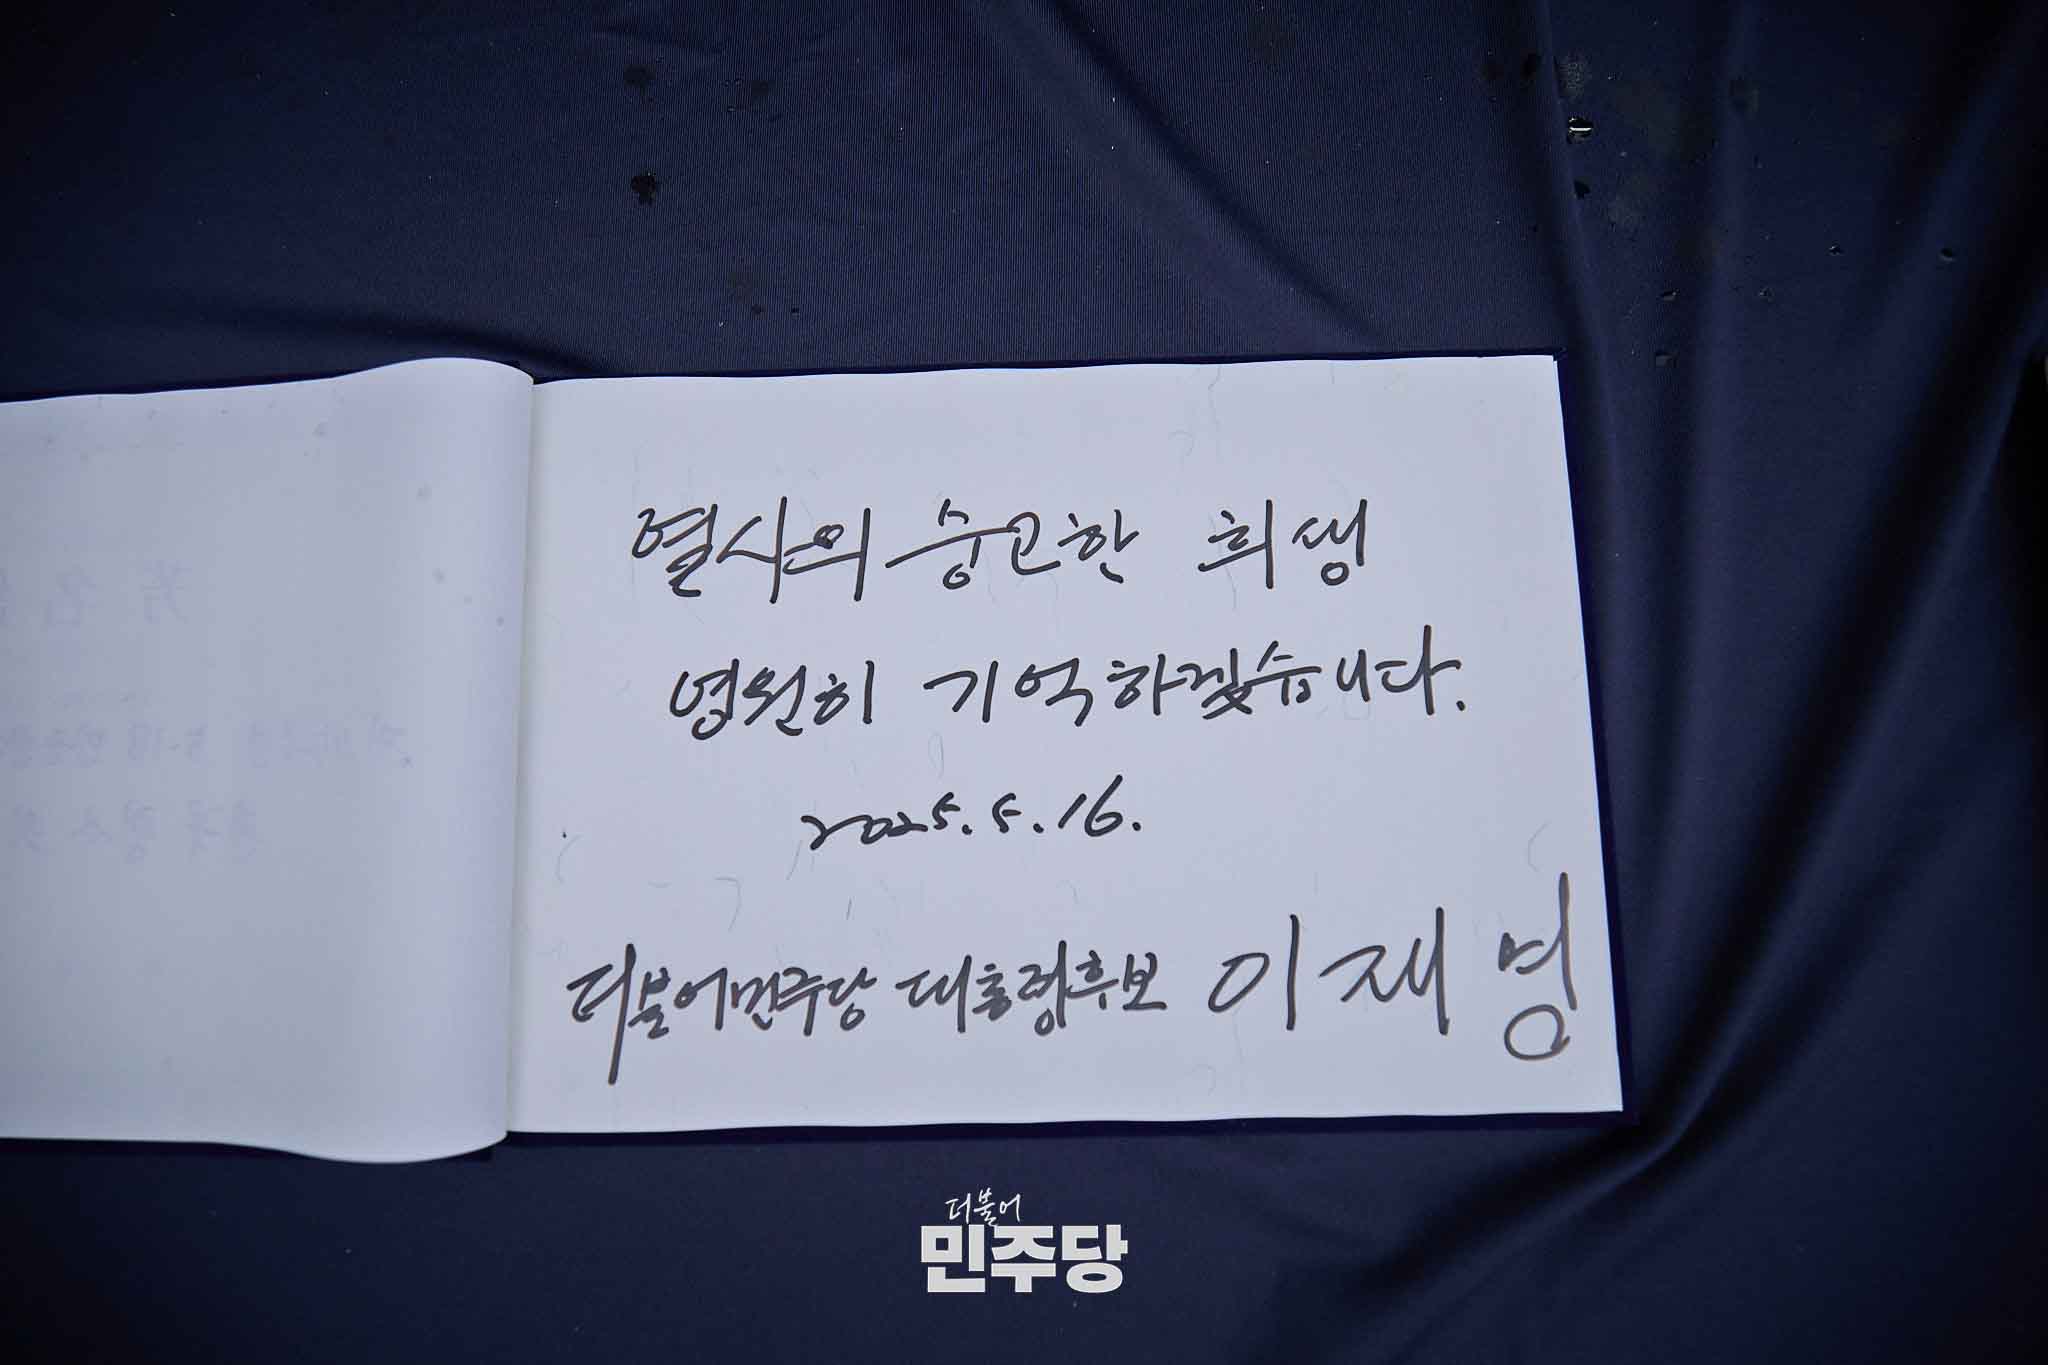 열사의 숭고한 희생
영원히 기억하겠습니다.
2025.5.16.
더불어민주당 대통령후보 이재명
더불어
민주당